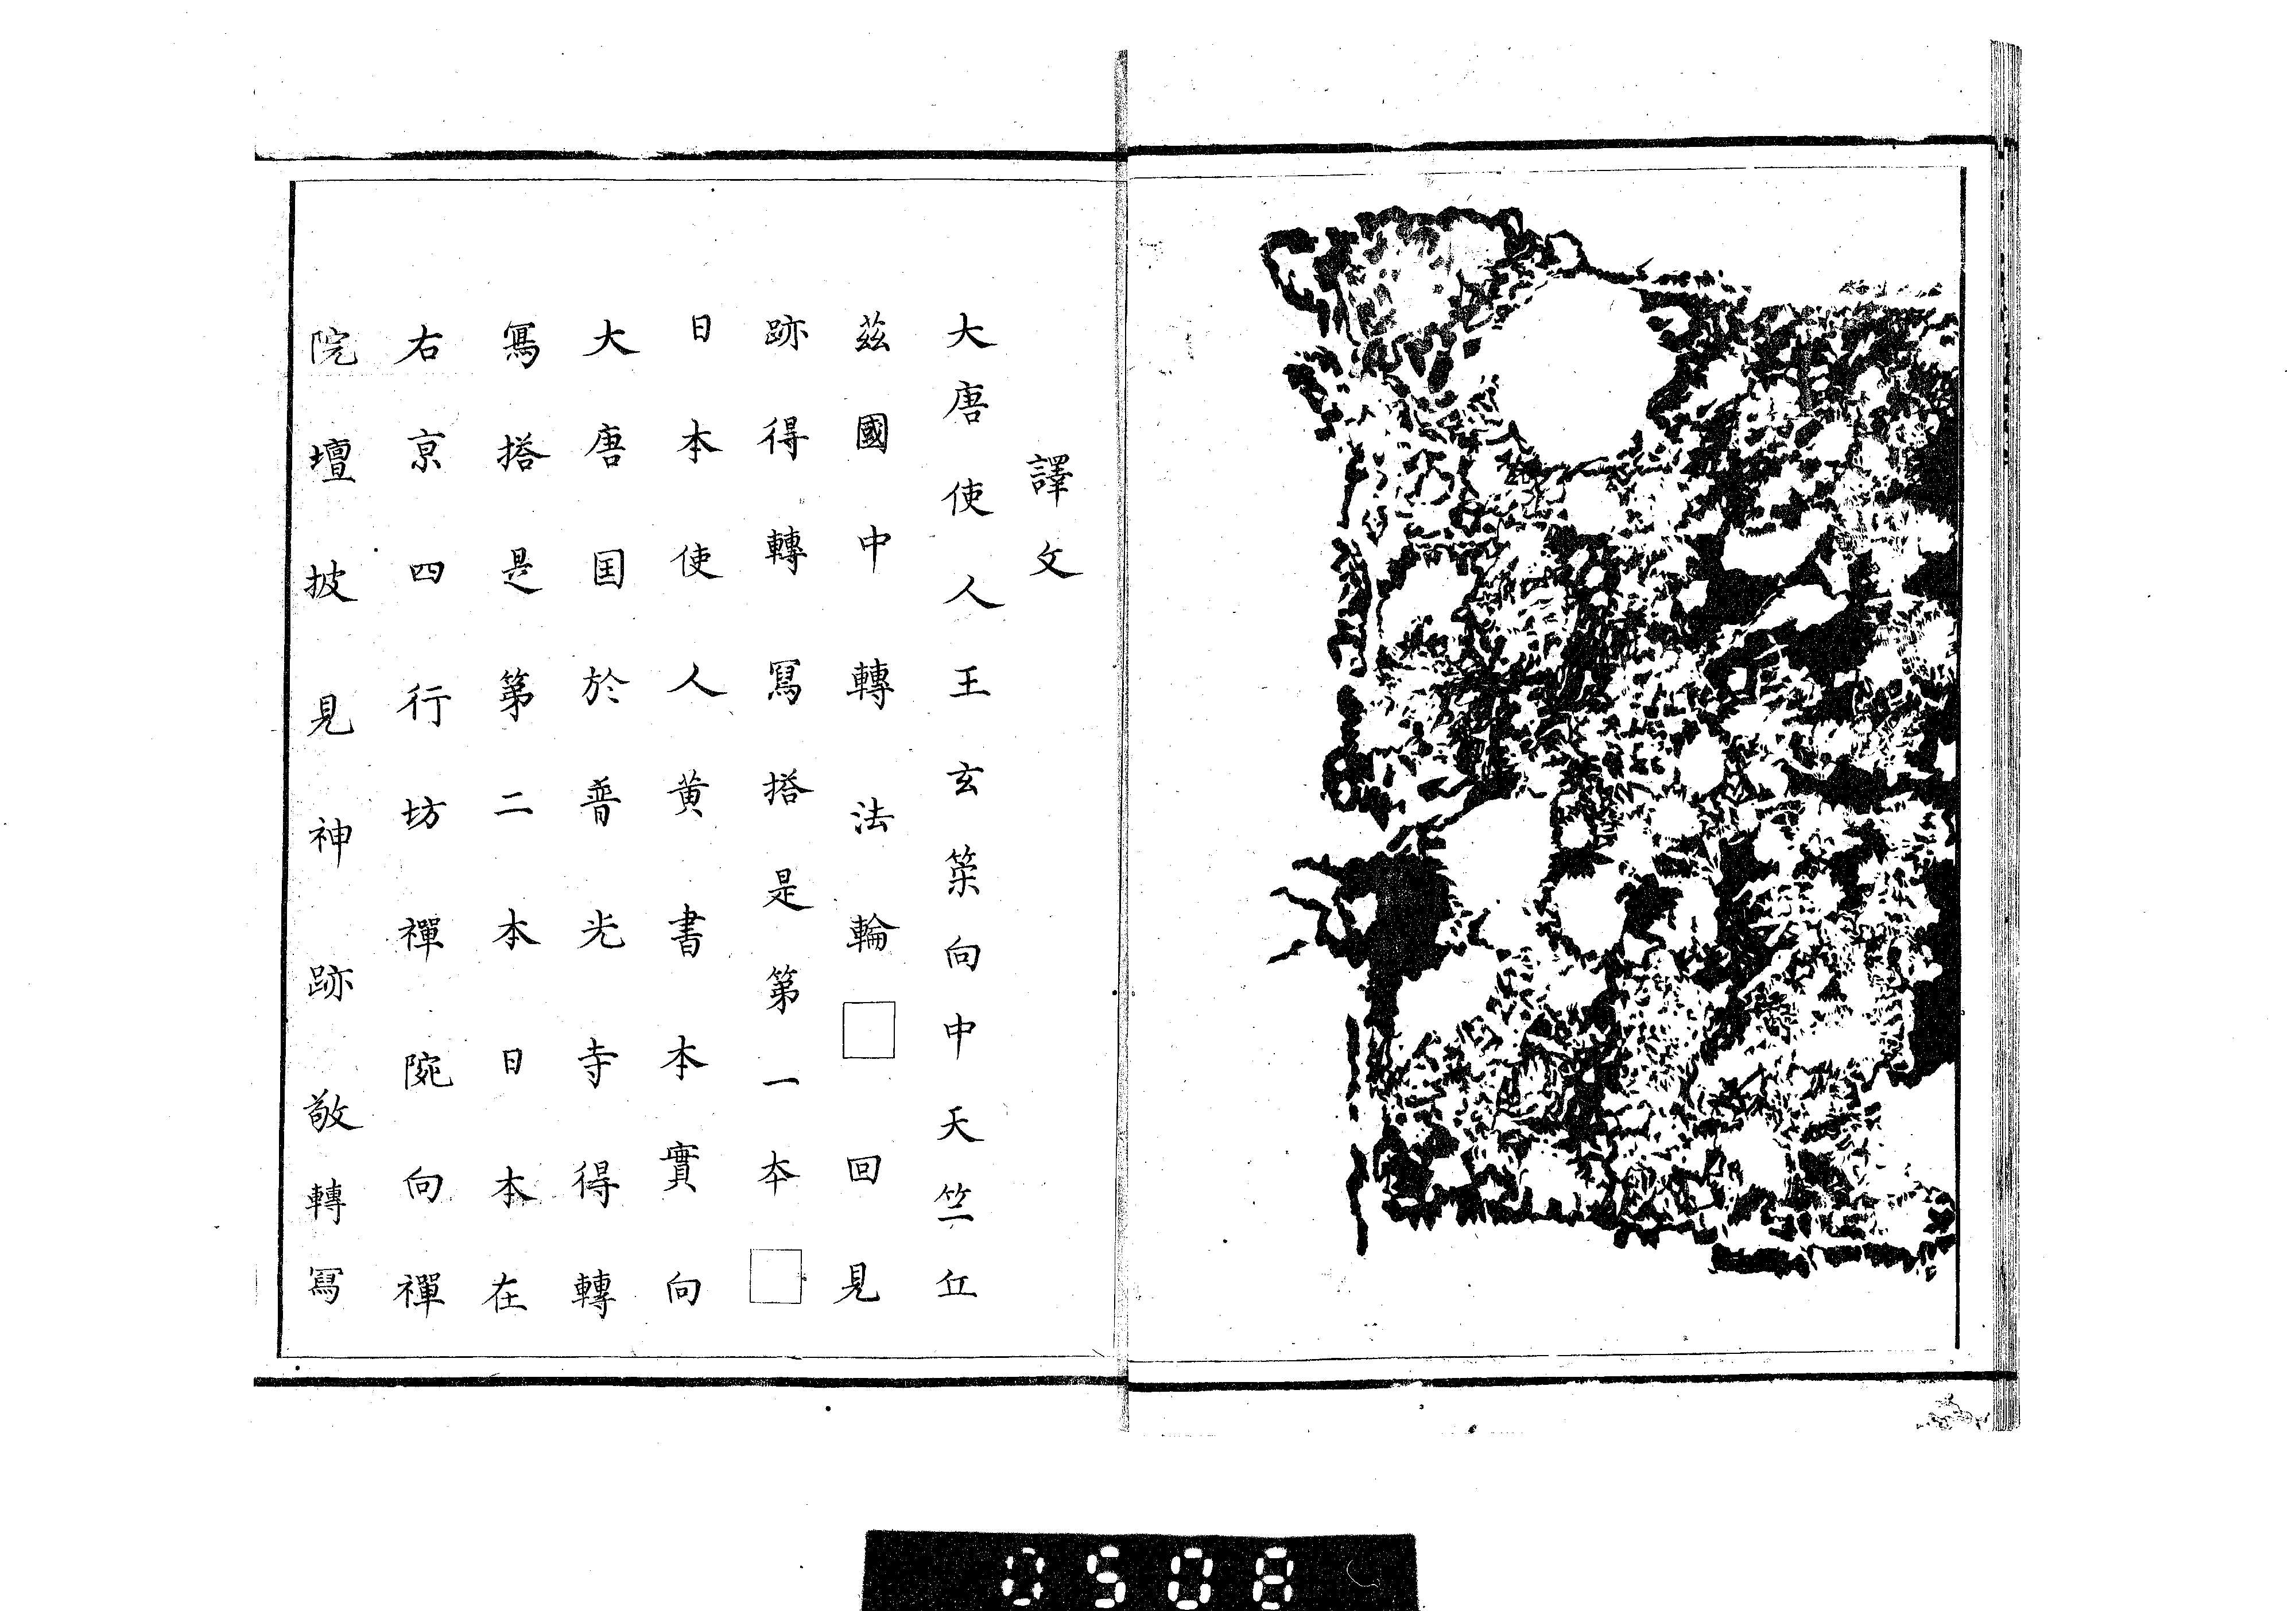 譯文
大唐使人王玄筞向中天竺丘
茲國中轉法輪□回見
跡得轉冩搭是第一本□
日本使人黄書本實向
大唐国於普光寺得轉
寫搭是第二本日本在
右亰四行坊禪院向禪
院壇披見神跡敬轉冩
0508